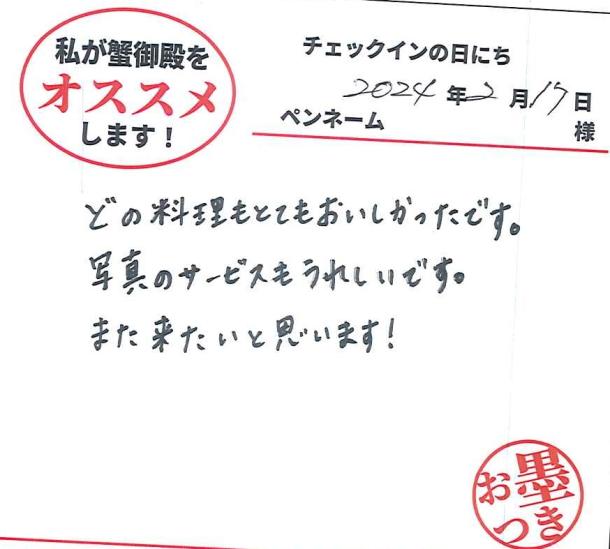 私が蟹御殿を
オススメ
します！
チェックインの日にち
2024年2月17日
ペンネーム 様
どの料理もとてもおいしかったです。
写真のサービスもうれしいです。
また来たいと思います！
お墨
つき